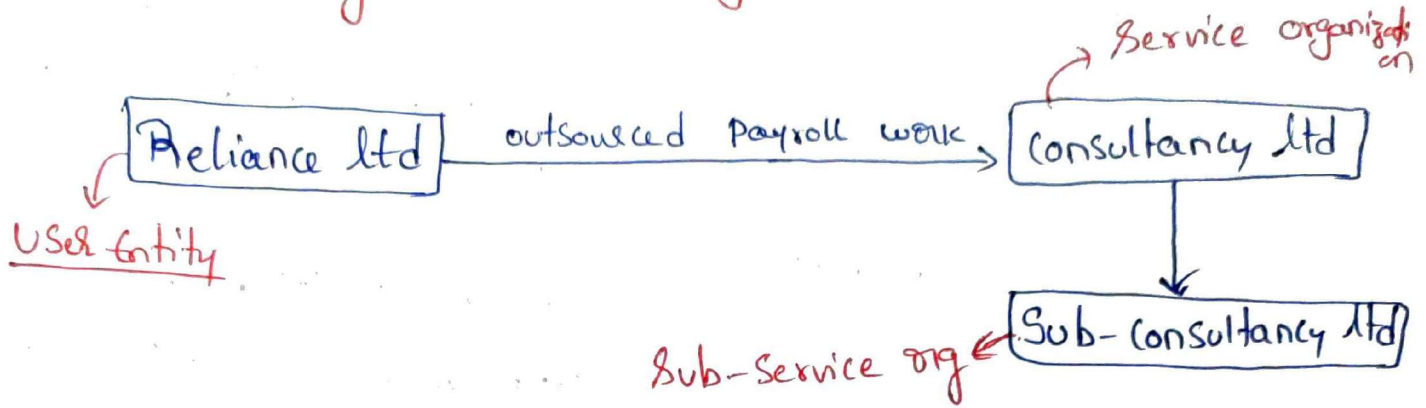 Service organization
Reliance ltd
outsourced payroll work
Consultancy ltd
User Entity
Sub-Consultancy ltd
Sub-Service org